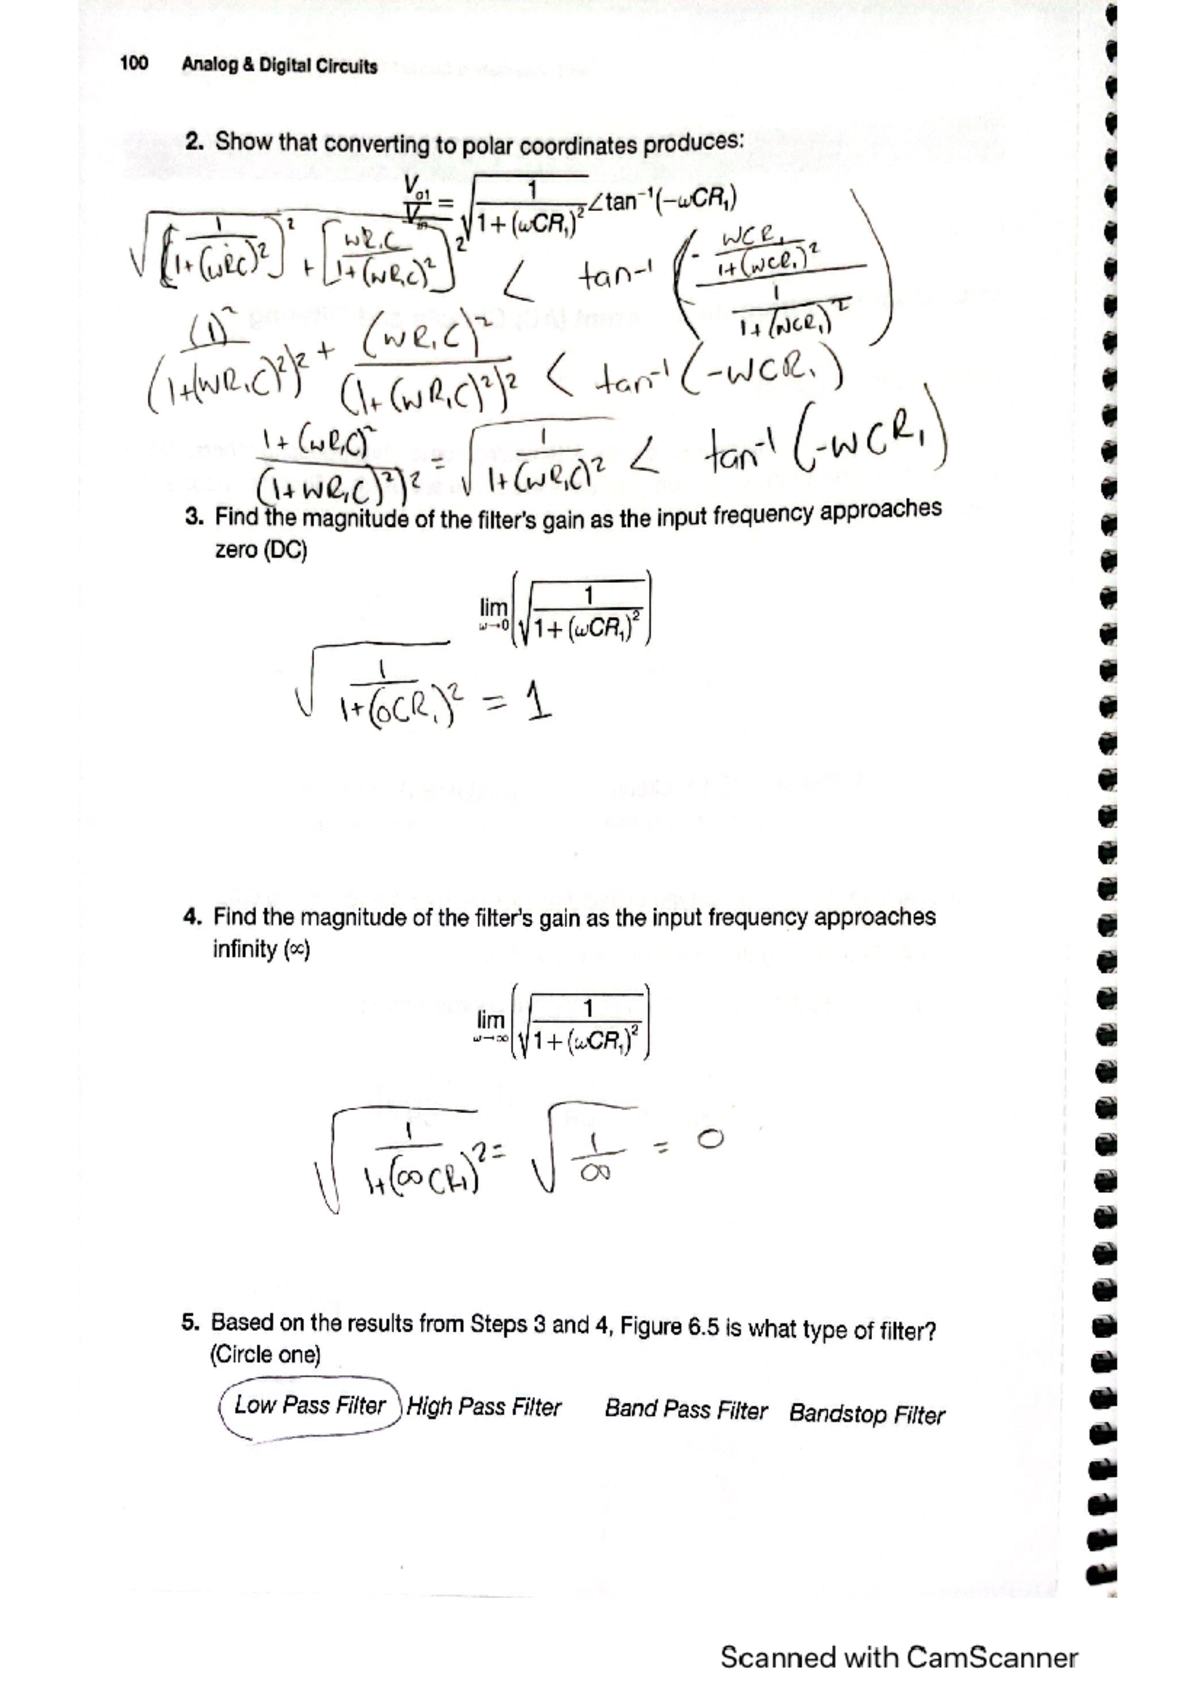 100 Analog & Digital Circuits
2. Show that converting to polar coordinates produces:
Vo1/Vin = √(1/(1+(ωCR₁)²)) ∠tan⁻¹(−ωCR₁)
√([1/(1+(ωRC)²)]² + [ωR₁C/(1+(ωR₁C)²)]²) < tan⁻¹(−(ωCR₁/(1+(ωCR₁)²))/(1/(1+(ωCR₁)²)))
(1)²/(1+(ωR₁C)²)² + (ωR₁C)²/(1+(ωR₁C)²)² < tan⁻¹(−ωCR₁)
1+(ωR₁C)²/(1+ωR₁C)²)² = √(1/(1+(ωR₁C)²)) < tan⁻¹(−ωCR₁)
3. Find the magnitude of the filter's gain as the input frequency approaches
zero (DC)
lim ω→0 (√(1/(1+(ωCR₁)²)))
√(1/(1+(0CR₁)²)) = 1
4. Find the magnitude of the filter's gain as the input frequency approaches
infinity (∞)
lim ω→∞ (√(1/(1+(ωCR₁)²)))
√(1/(1+(∞CR₁)²)) = √(1/∞) = 0
5. Based on the results from Steps 3 and 4, Figure 6.5 is what type of filter?
(Circle one)
Low Pass Filter High Pass Filter Band Pass Filter Bandstop Filter
Scanned with CamScanner